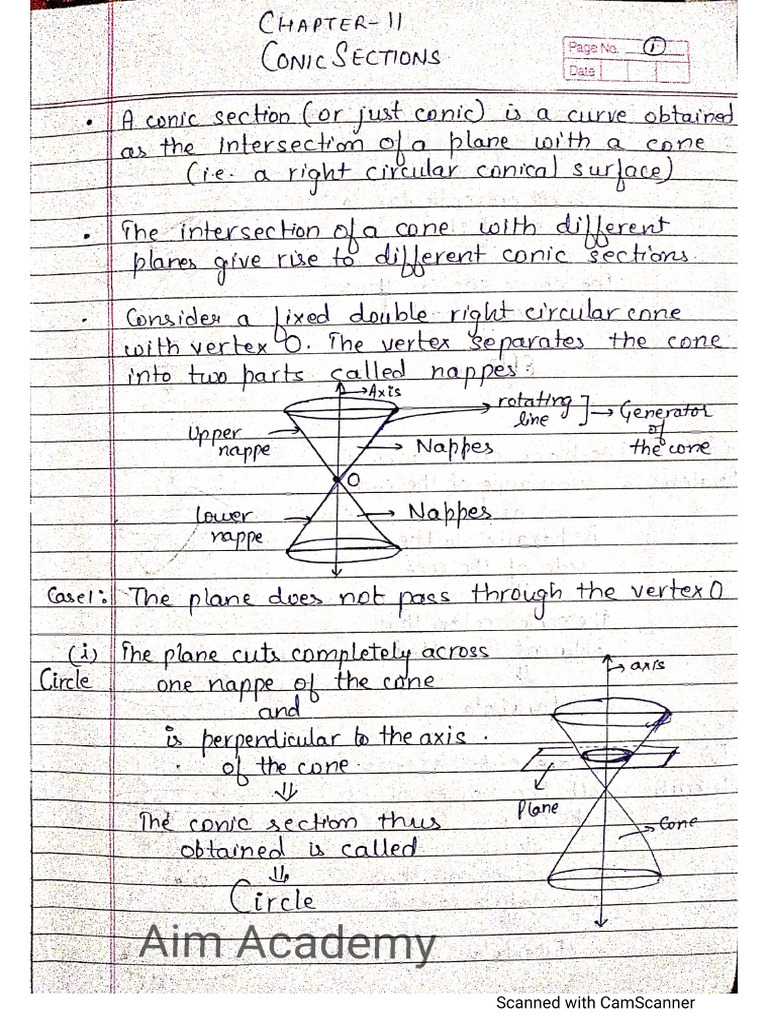 CHAPTER-11
CONIC SECTIONS
Page No. 1
Date
• A conic section (or just conic) is a curve obtained
as the intersection of a plane with a cone
(i.e. a right circular conical surface)
• The intersection of a cone with different
planes give rise to different conic sections.
• Consider a fixed double right circular cone
with vertex O. The vertex separates the cone
into two parts called nappes.
→Axis
→ rotating line ]→ Generator of the cone
Upper nappe
→ Nappes
O
lower nappe
→ Nappes
Case1: The plane does not pass through the vertex O
(i) The plane cuts completely across
Circle one nappe of the cone
and
is perpendicular to the axis.
of the cone.
⇓
The conic section thus
obtained is called
⇓
Circle
→ axis
Plane
→ Cone
Aim Academy
Scanned with CamScanner